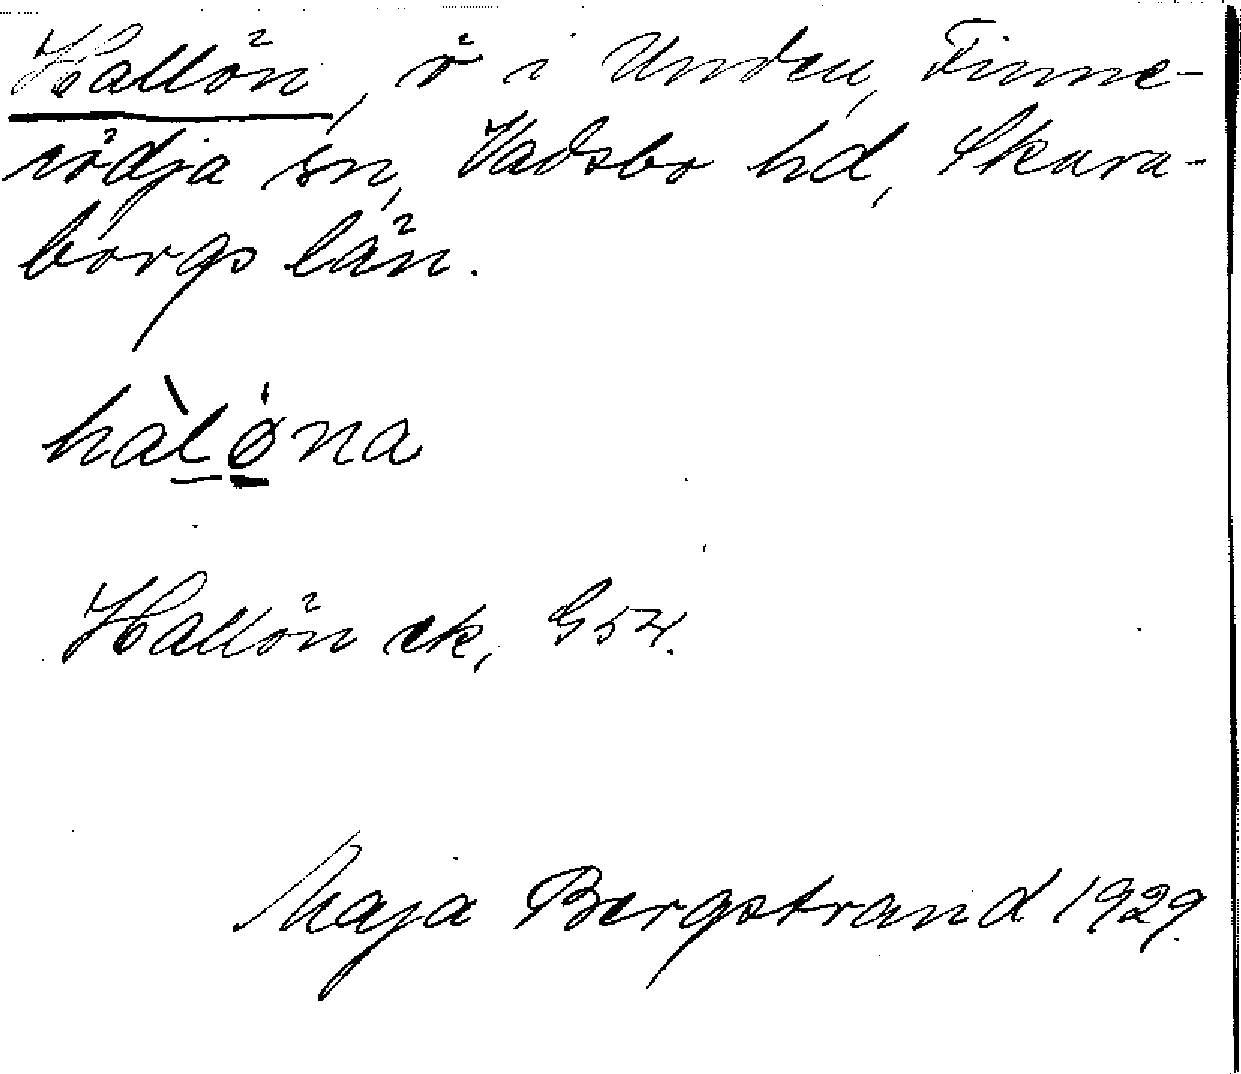 Hallön, ö i Unden, Finne-
rödja sn, Vadsbo hd, Skara-
borgs län.
hàløna
Hallön ek, G54.
Maja Bergstrand 1929.